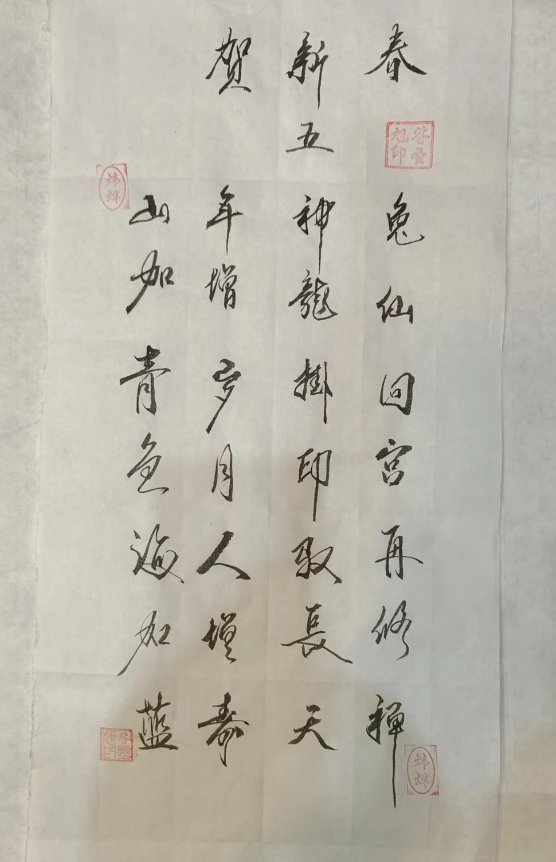 春 兔仙回宫再修禅
新五 神龍掛印驭長天
贺 年增岁月人增寿
山加青色海加蓝